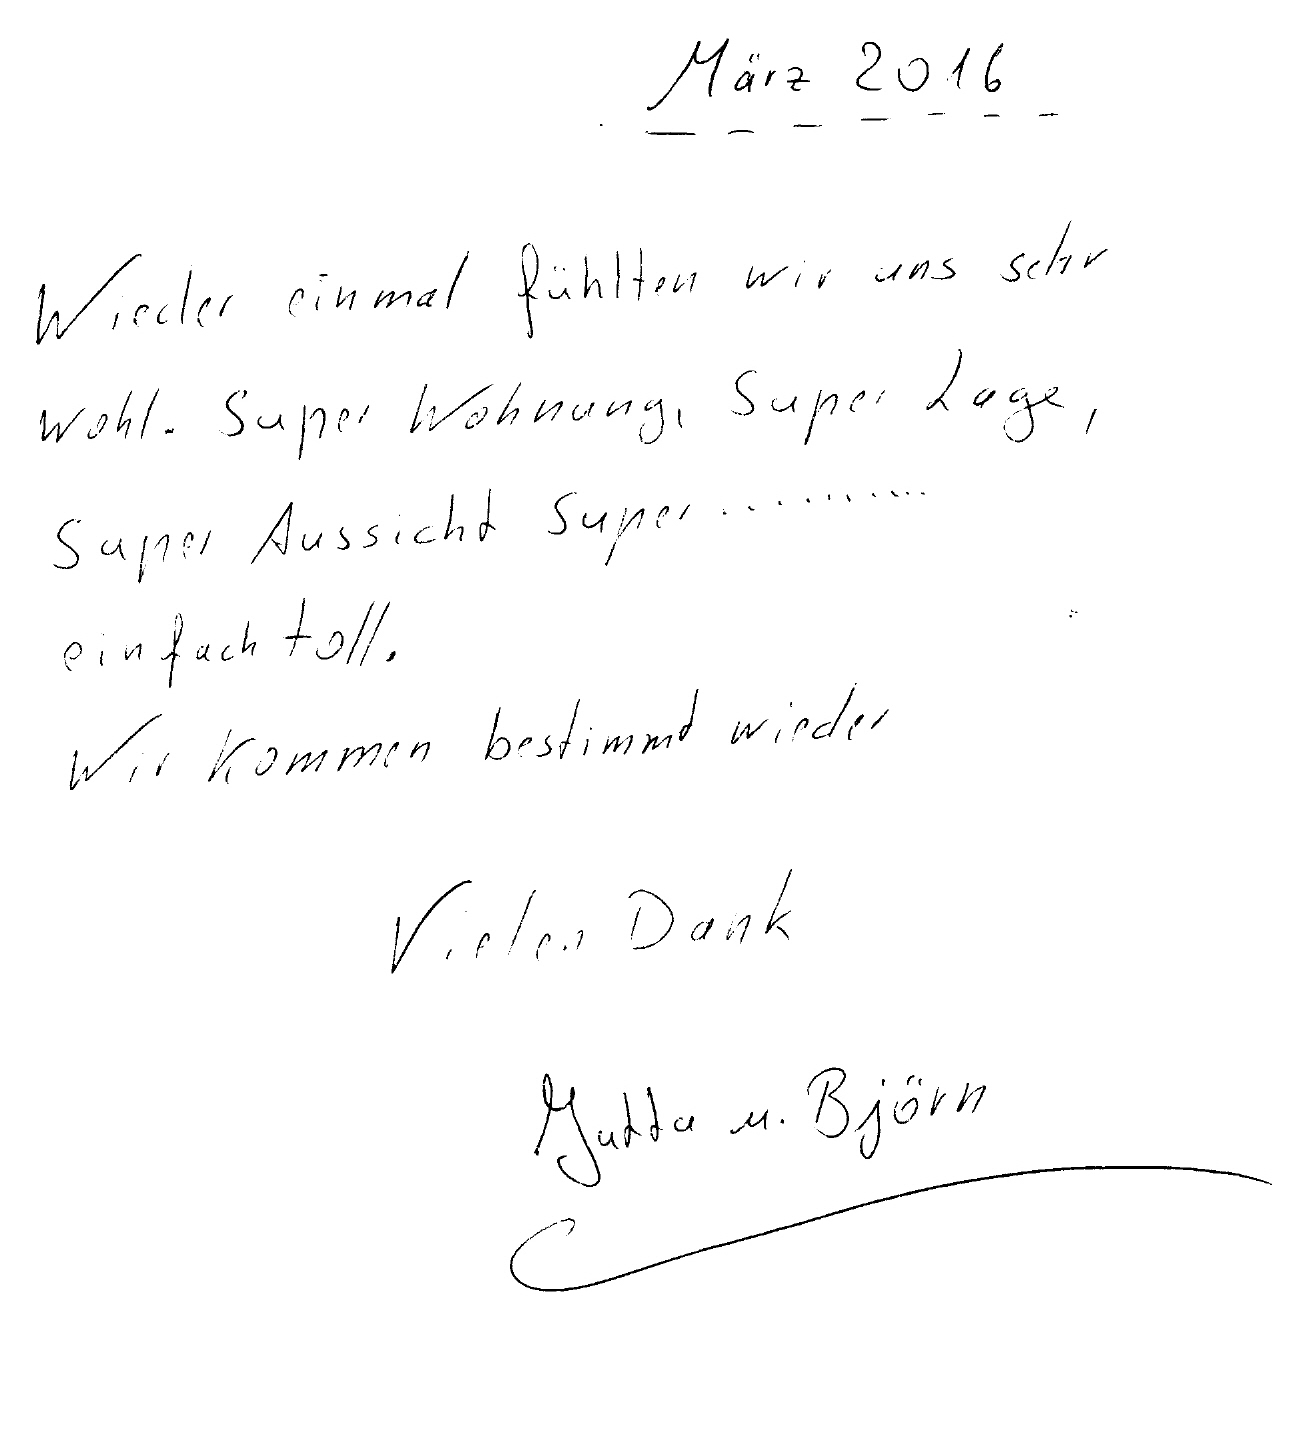 März 2016
Wieder einmal fühlten wir uns sehr
wohl. Super Wohnung, Super Lage,
Super Aussicht Super..........
einfach toll.
Wir kommen bestimmt wieder
Vielen Dank
Jutta u. Björn